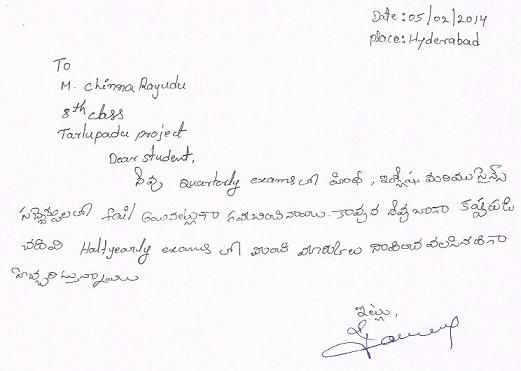 Date: 05/02/2014
place: Hyderabad
To
M. Chinna Rayudu
8th class
Tarlupadu project
Dear student,
నీవు Quarterly exams లో హిందీ, ఇంగ్లీషు మరియు సైన్స్
సబ్జెక్టులలో fail అయినట్లుగా గమనించినాము. కావున నీవు బాగా కష్టపడి
చదివి Halfyearly exams లో మంచి మార్కులు సాధించ వలసినదిగా
హెచ్చరిస్తున్నాము
ఇట్లు,